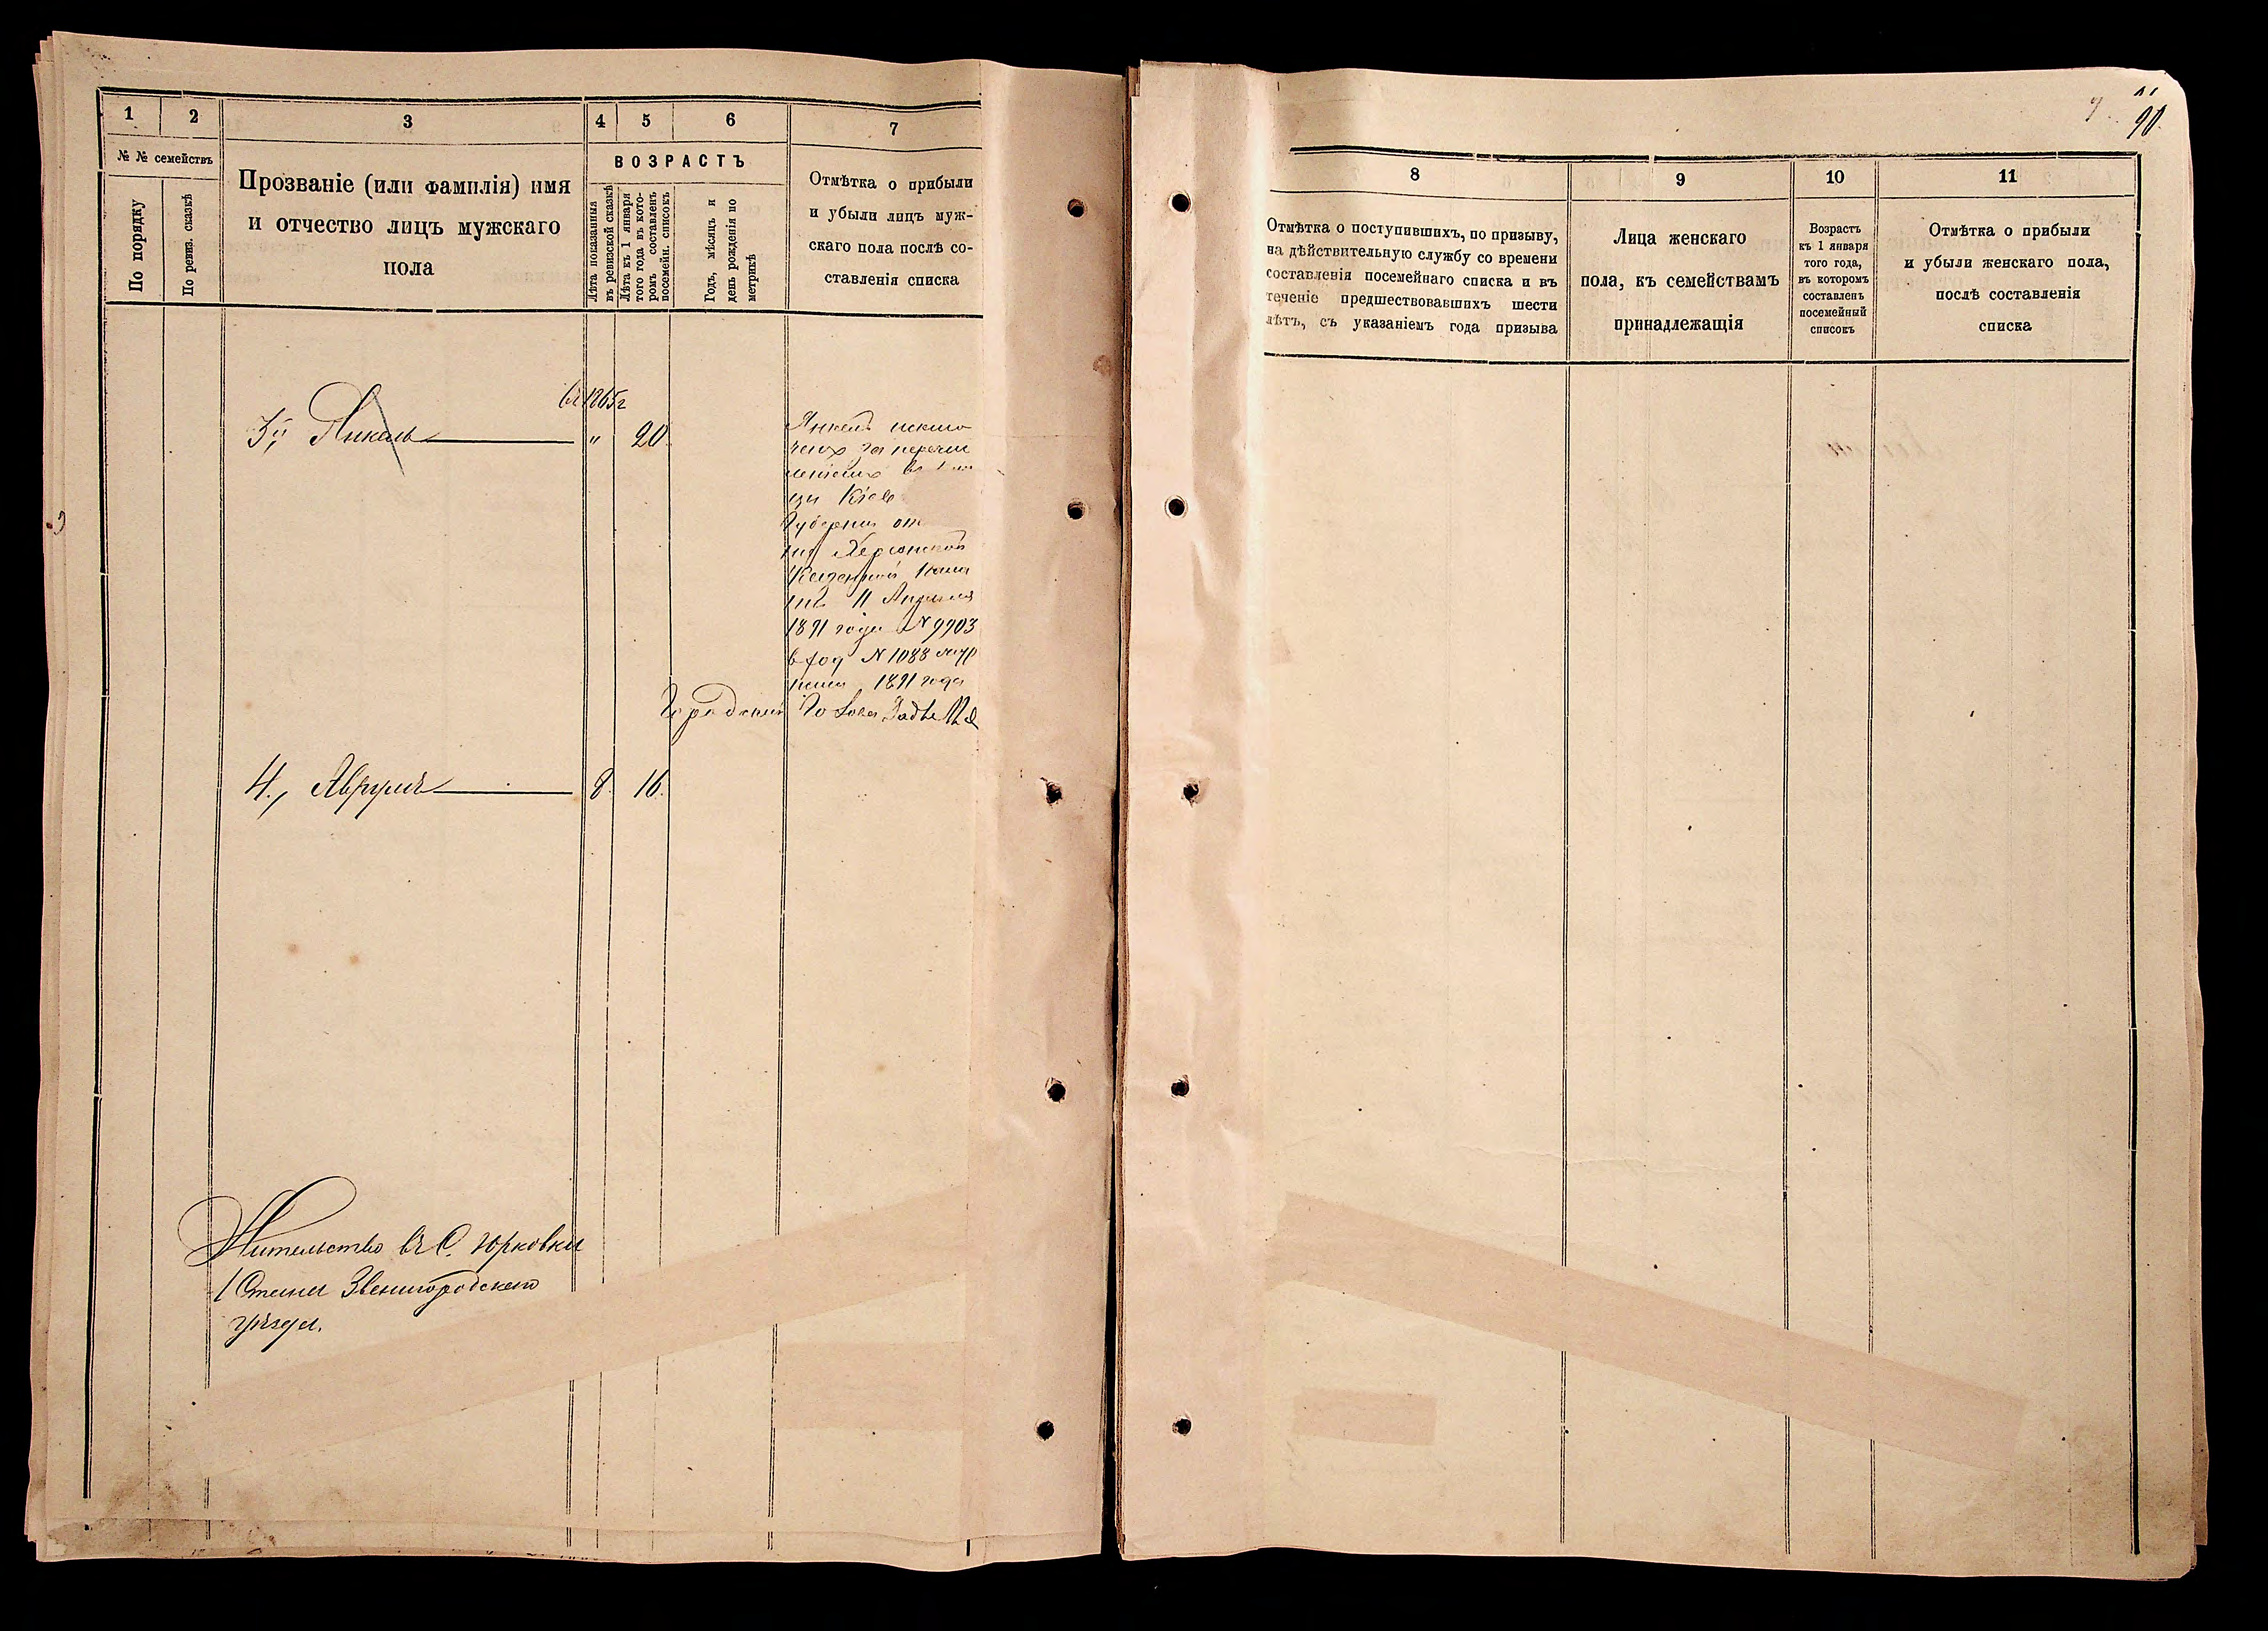 1 2 3 4 5 6 7
№ № семействъ
По порядку
По ревиз. сказкѣ
Прозваніе (или фамилія) имя
и отчество лицъ мужскаго
пола
ВОЗРАСТЪ
Лѣта показанныя
въ ревизской сказкѣ
Лѣта къ 1 января
того года въ кото-
ромъ составленъ
посемейн. списокъ
Годъ, мѣсяцъ и
день рожденія по
метрикѣ
Отмѣтка о прибыли
и убыли лицъ муж-
скаго пола послѣ со-
ставленія списка
въ 1865 г
3, Янкель " 20
Янкель исклю
ченъ за перечи
въ
Кіев
Губерніи от
Херсонской
Казенной Пала
ты 11 Апрѣля
1891 года № 9903
вход № 1088
1891 года
Городской Голова
4., Аврумъ 8 16.
Жительство въ С. Юрковки
Звенигородскаго
уѣзда.
90
8 9 10 11
Отмѣтка о поступившихъ, по призыву,
на дѣйствительную службу со времени
составленія посемейнаго списка и въ
теченіе предшествовавшихъ шести
лѣтъ, съ указаніемъ года призыва
Лица женскаго
пола, къ семействамъ
принадлежащія
Возрастъ
къ 1 января
того года,
въ которомъ
составленъ
посемейный
списокъ
Отмѣтка о прибыли
и убыли женскаго пола,
послѣ составленія
списка